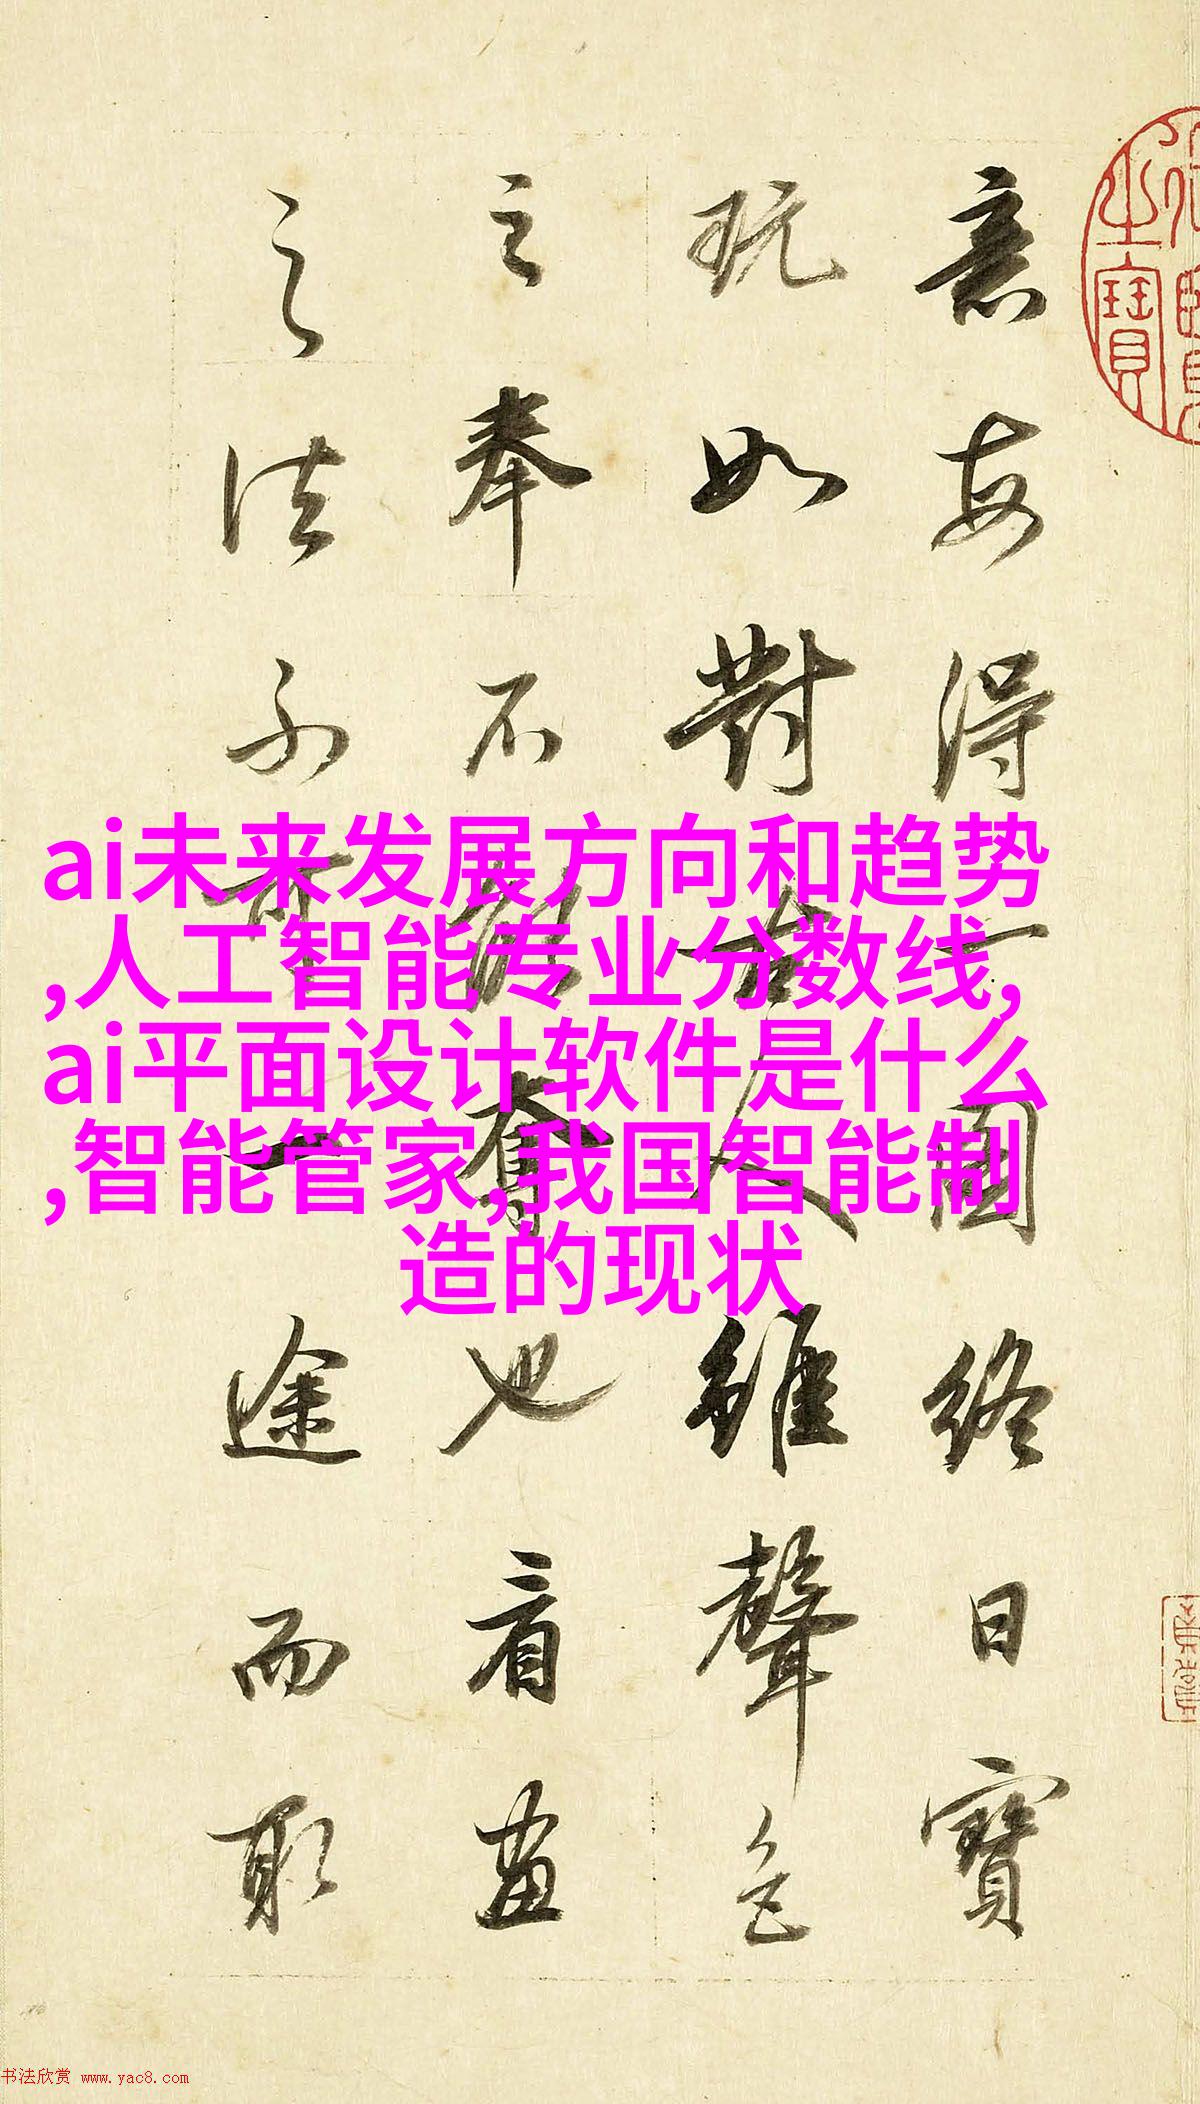 意每得一圖終日寶
玩如對古人雖聲色
之奉不能奪也看畫
之法不可一途而取
之寶
ai未来发展方向和趋势
,人工智能专业分数线,
ai平面设计软件是什么
,智能管家,我国智能制
造的现状
书法欣赏 www.yac8.com